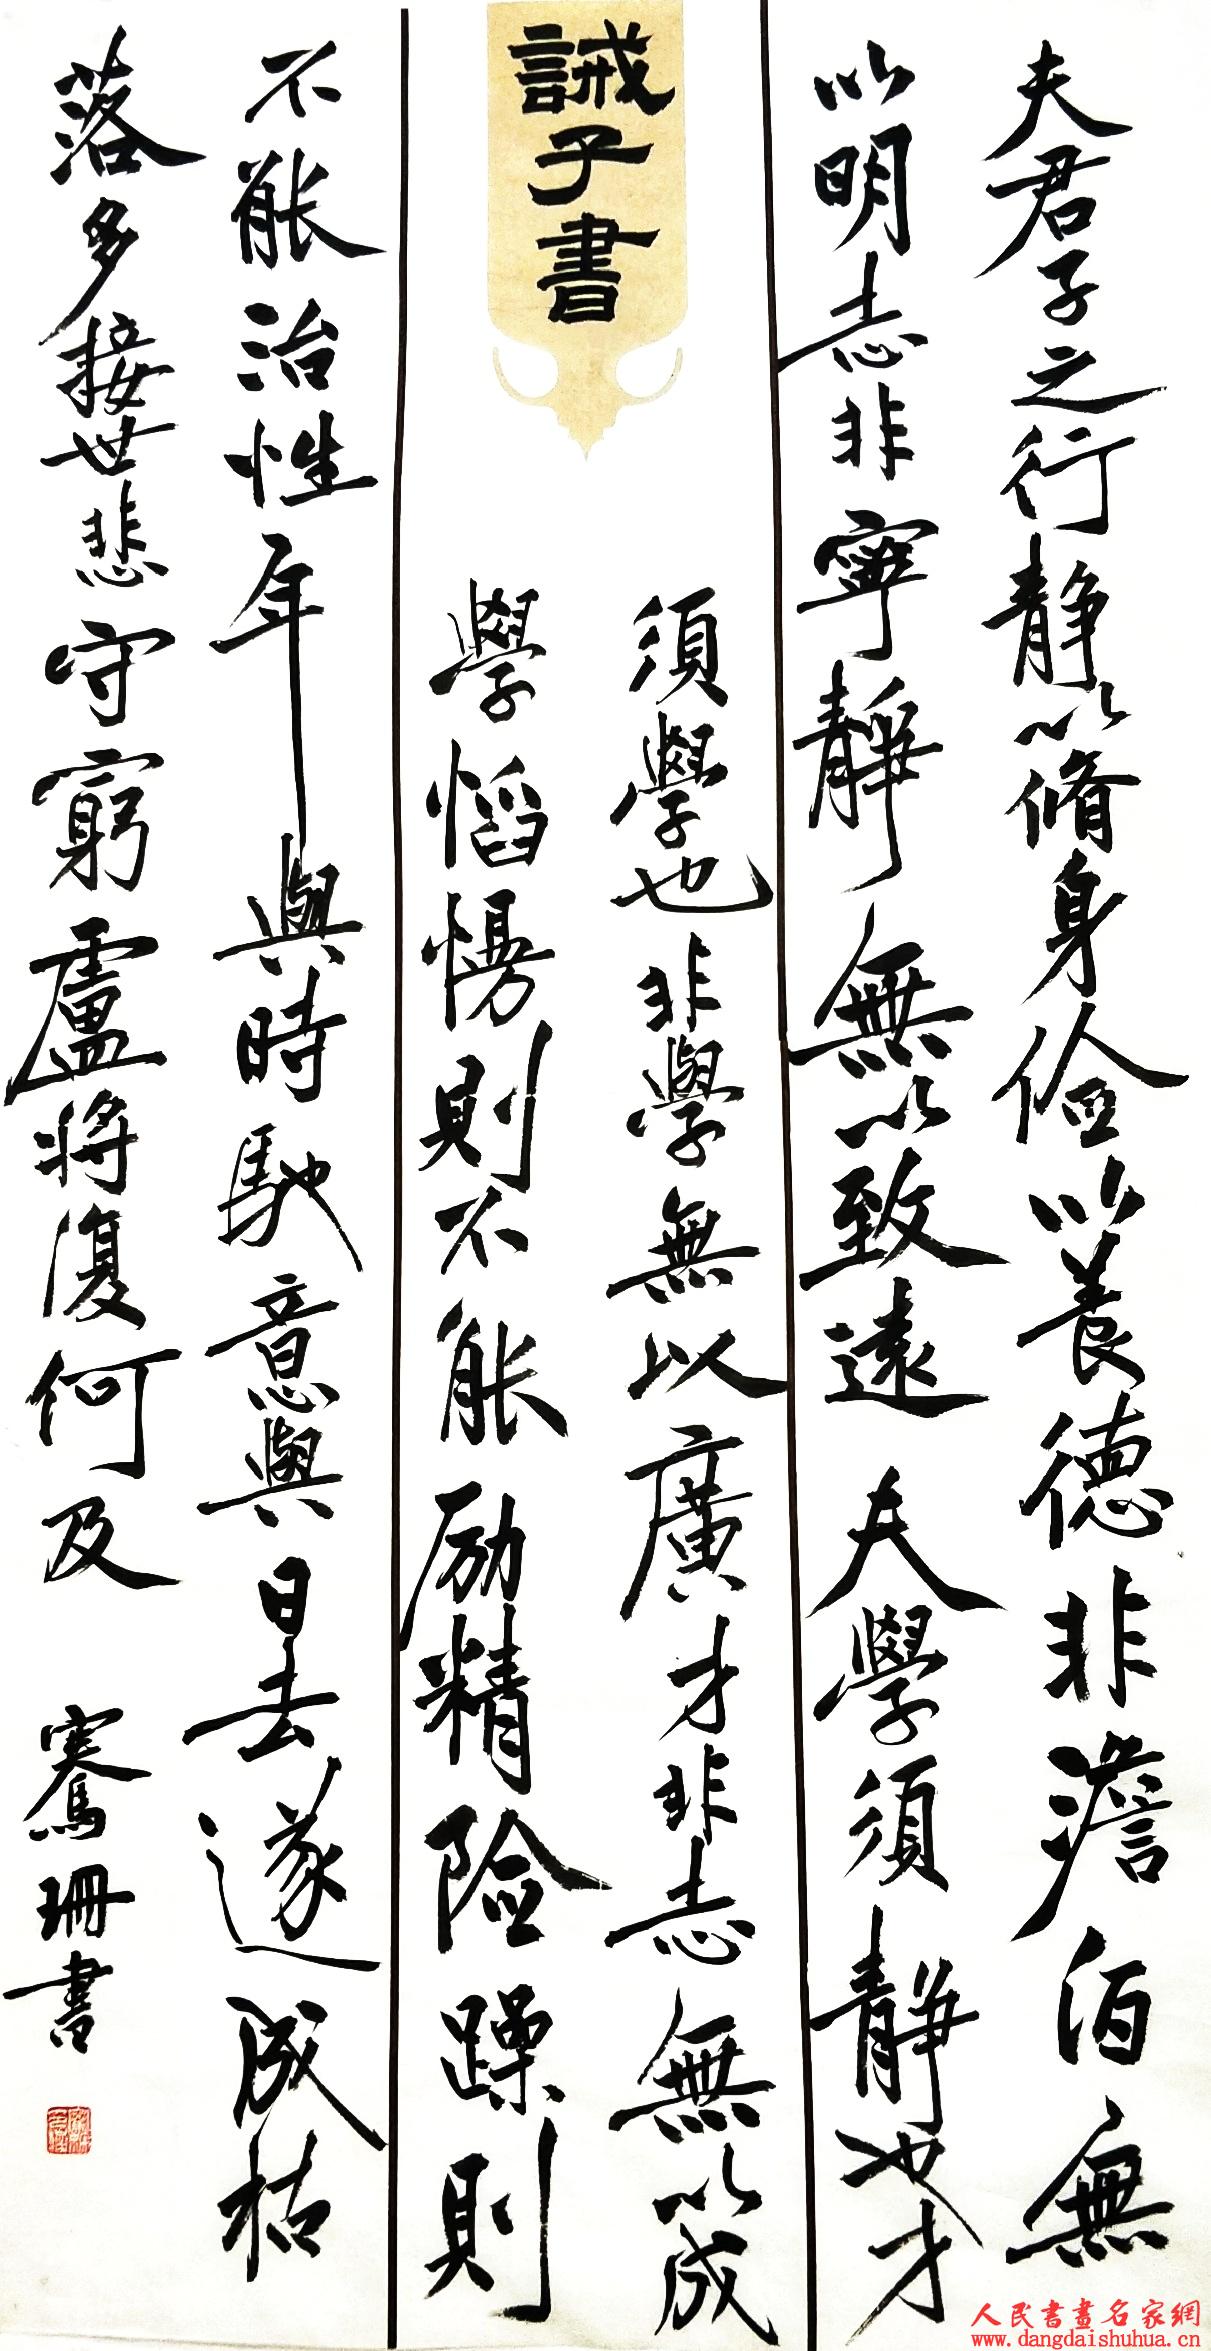 誡子書
夫君子之行静以脩身俭以養德非澹泊無
以明志非寧靜無以致遠夫學須静也才
須學也非學無以廣才非志無以成
學慆慢則不能励精險躁則
不能治性年與時馳意與日去遂成枯
落多接世悲守窮廬將復何及
騫珊書
人民書畫名家網
www.dangdaishuhua.cn